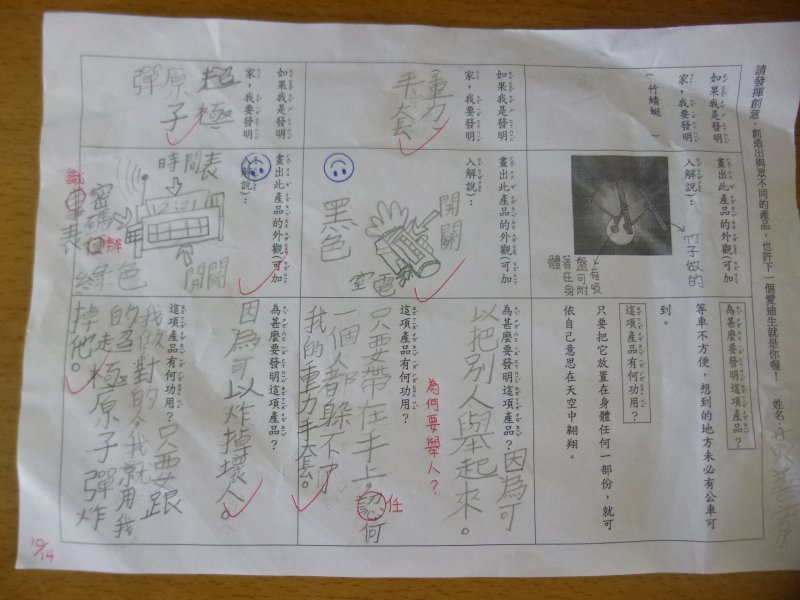 請發揮創意，創造出與眾不同的產品，也許下一個愛迪生就是你喔！ 姓名：
如果我是發明
家，我要發明
（ 竹蜻蜓 ）
畫出此產品的外觀(可加
入解說)：
竹子做的
有吸
盤可附
著在身
體
為甚麼要發明這項產品？
等車不方便，想到的地方未必有公車可
到。
這項產品有何功用？
只要把它放置在身體任何一部份，就可
依自己意思在天空中翱翔。
如果我是發明
家，我要發明
重力
手套
畫出此產品的外觀(可加
入解說)：
開關
室電
黑色
為甚麼要發明這項產品？
因為可
以把別人舉起來。
為何要舉人？
這項產品有何功用？
只要帶在手上。認何
任
一個人都躲不了
我的重力手套。
如果我是發明
家，我要發明
超極
原子
彈
畫出此產品的外觀(可加
入解說)：
時間表
12:21
開關
密碼
辨
識
綠色
為甚麼要發明這項產品？
因為可以炸掉壞人。
這項產品有何功用？
只要跟
我做對的令我就用我
的超極原子彈炸
掉他。
10/14